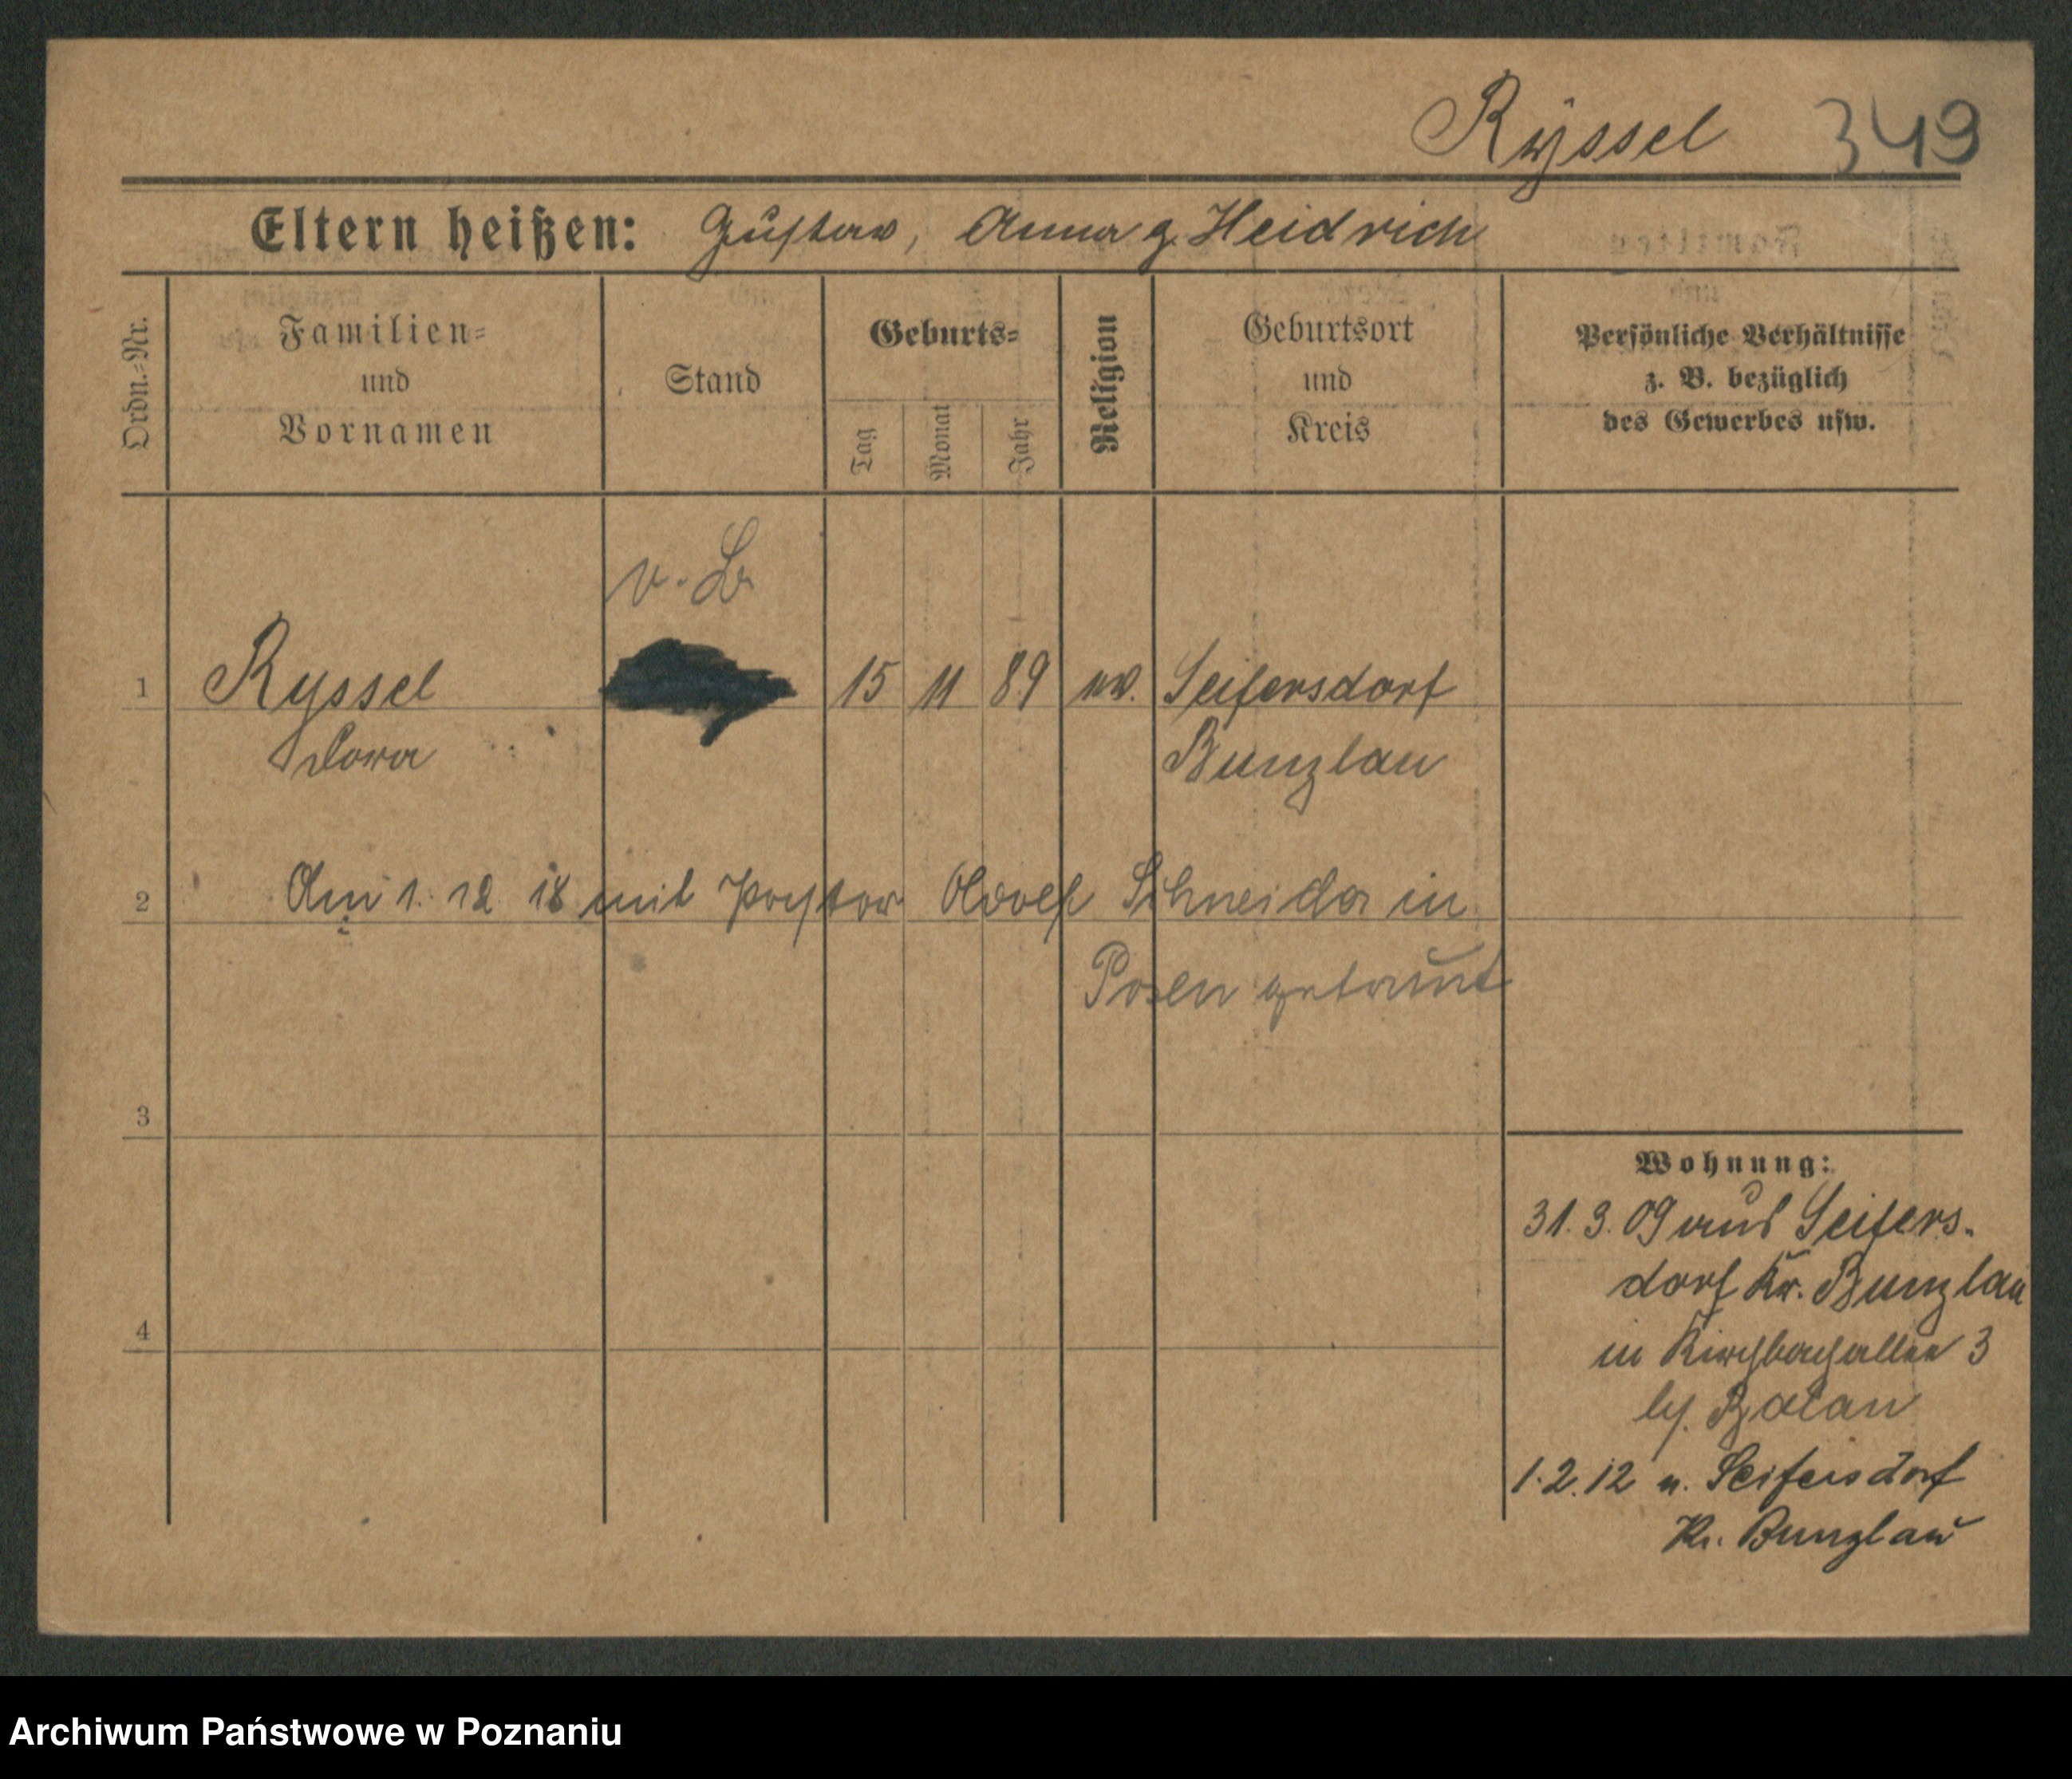 Ryssel 349
Eltern heißen: Gustav, Anna g. Heidrich
Ordn.=Nr.
Familien=
und
Vornamen
Stand
Geburts=
Tag
Monat
Jahr
Religion
Geburtsort
und
Kreis
Persönliche Verhältnisse
z. B. bezüglich
des Gewerbes usw.
1 Ryssel 15 11 89 ev. Seifersdorf
Dora Bunzlau
2 Am 1. 12 18 mit Pastor Adolf Schneider in
Posen getraut
3
4
Wohnung:
31. 3. 09 aus Seifers-
dorf Kr. Bunzlau
in Kirchbachallee 3
1. 2. 12 n. Seifersdorf
Kr. Bunzlau
Archiwum Państwowe w Poznaniu